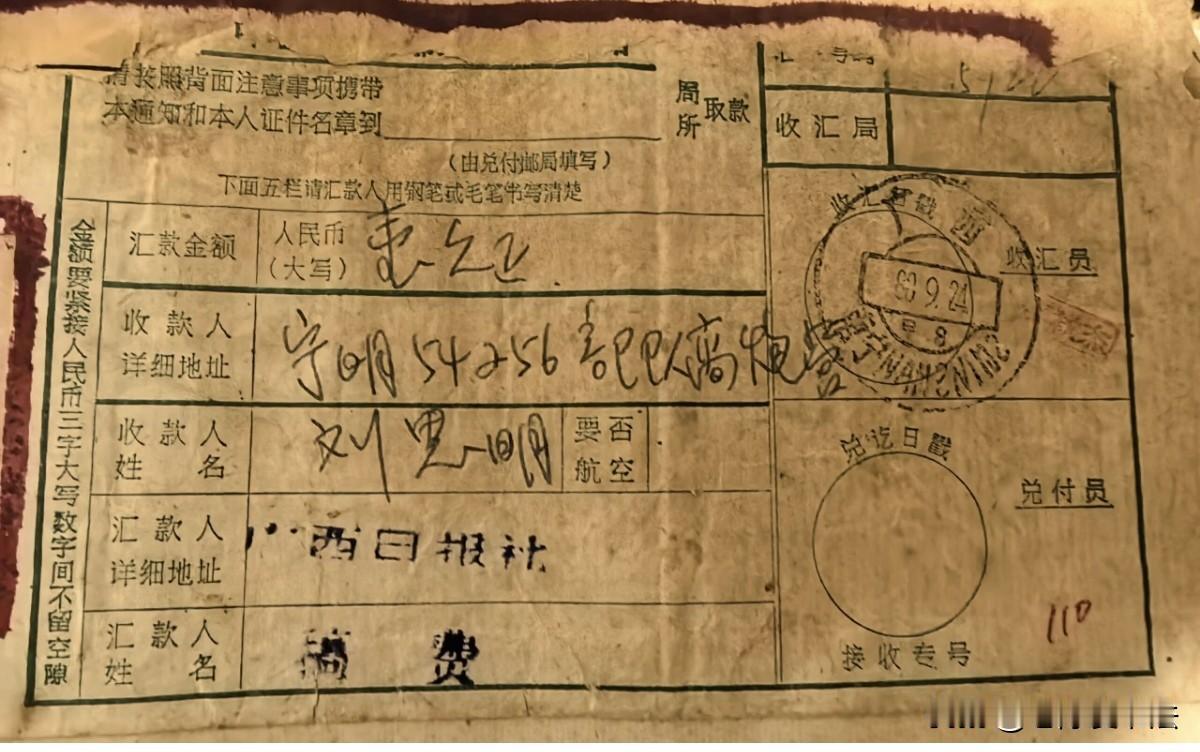 请按照背面注意事项携带
本通知和本人证件名章到
局所取款
(由兑付邮局填写)
下面五栏请汇款人用钢笔或毛笔书写清楚
收汇局
金额要紧接人民币三字大写数字间不留空隙
汇款金额
人民币
(大写)
收款人
详细地址
宁明54256
收款人
姓名
刘思明
要否
航空
汇款人
详细地址
广西日报社
汇款人
姓名
稿费
收汇日戳
收汇员
西
9.24
8
NANNING
兑讫日戳
兑付员
110
接收专号